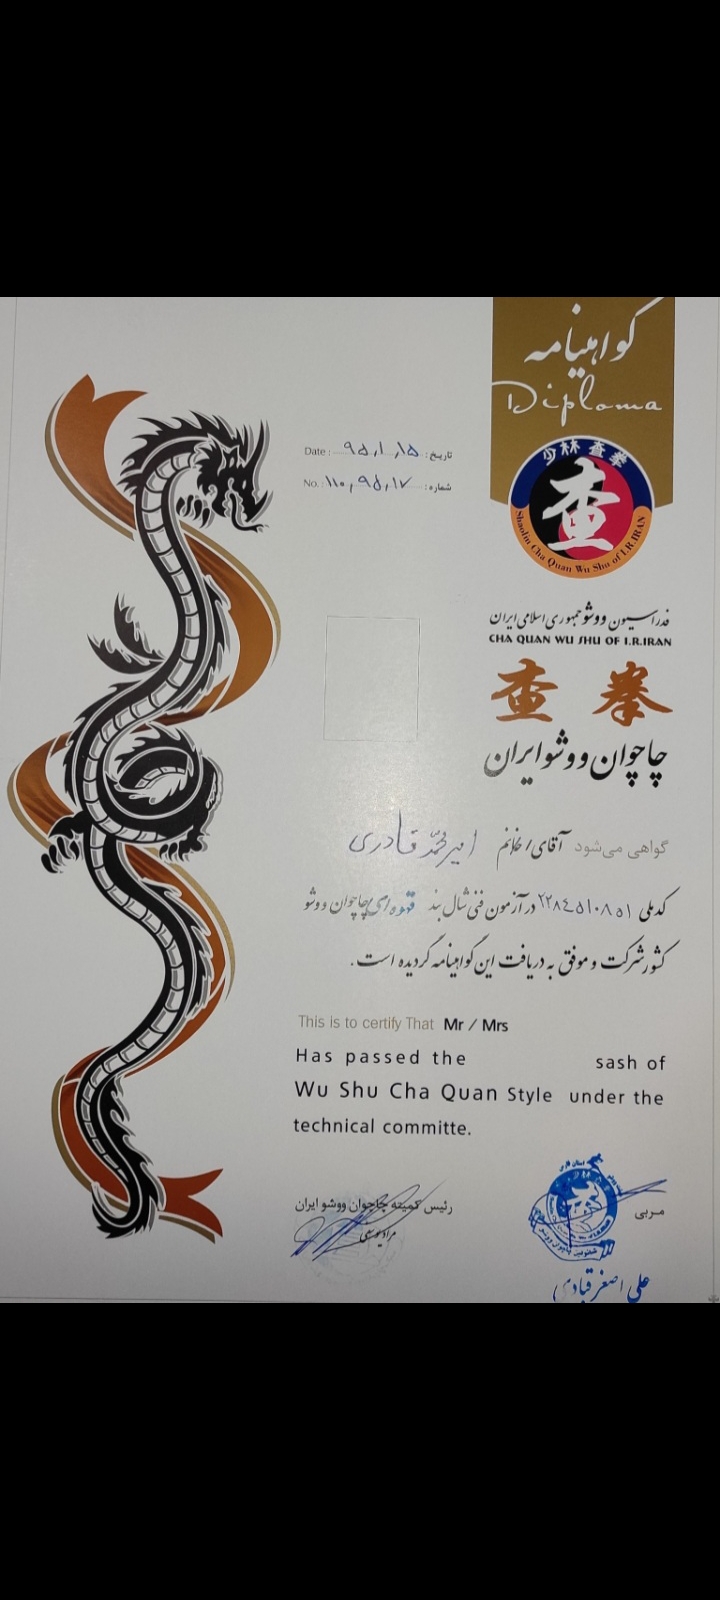 گواهینامه
Diploma
少林查拳
查
Shaolin Cha Quan Wu Shu of I.R.IRAN
Date : ۹۵,۱,۱۵ تاریخ :
No. ۱۱۰,۹۵,۱۷ شماره :
فدراسیون ووشو جمهوری اسلامی ایران
CHA QUAN WU SHU OF I.R.IRAN
查 拳
چاچوان ووشو ایران
گواهی می‌شود آقای/خانم امیرمحمد قادری
کدملی ۲۲۸٤٥١٠٨٥١ در آزمون فنی شال بند قهوه‌ای چاچوان ووشو
کشور شرکت و موفق به دریافت این گواهینامه گردیده است.
This is to certify That Mr / Mrs
Has passed the sash of
Wu Shu Cha Quan Style under the
technical committe.
مربی
علی اصغر قبادی
رئیس کمیته چاچوان ووشو ایران